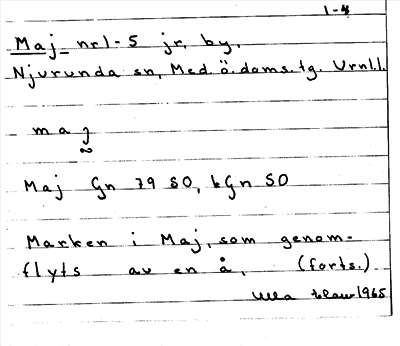 1-4
Maj nr 1-5 jr, by.
Njurunda sn, Med.ö.doms.tg. Vrnl.l.
maj
Maj Gn 79 SO, kGn SO
Marken i Maj, som genom-
flyts av en å. (forts.)
Ulla 1965